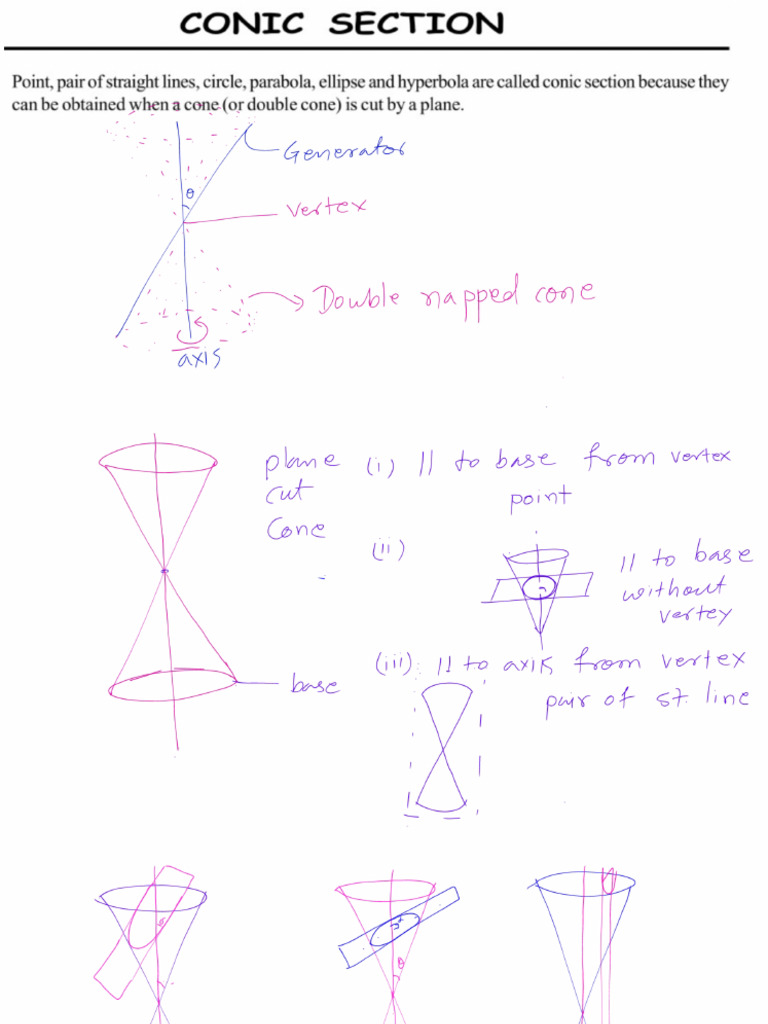 CONIC SECTION
Point, pair of straight lines, circle, parabola, ellipse and hyperbola are called conic section because they
can be obtained when a cone (or double cone) is cut by a plane.
Generator
θ
vertex
Double napped cone
axis
plane (i) || to base from vertex
cut point
Cone
(ii)
|| to base
without
vertey
(iii) || to axis from vertex
base
pair of st. line
θ